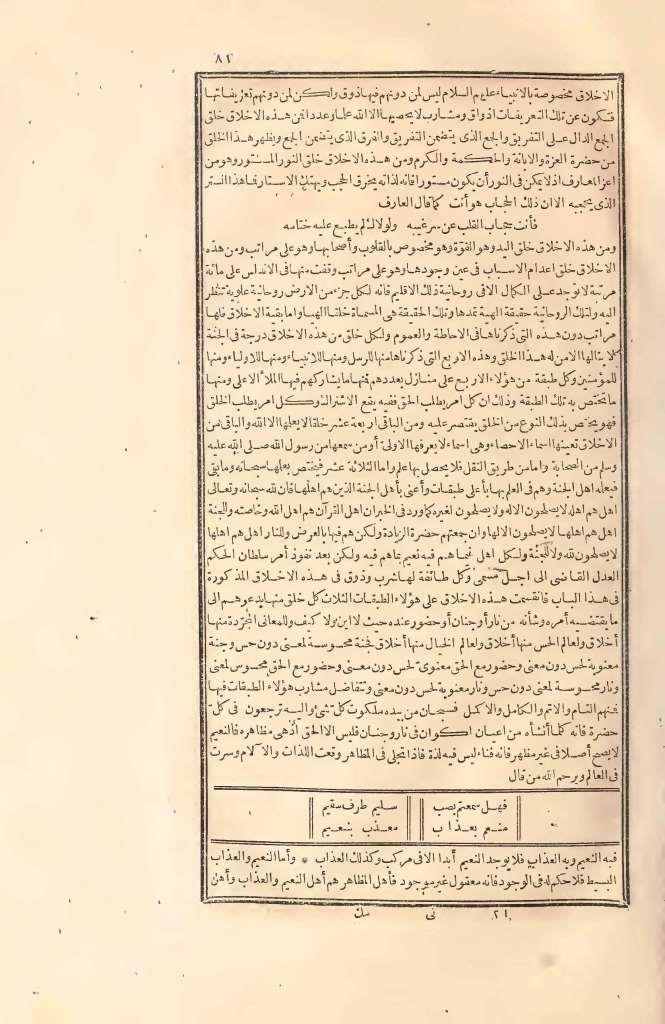 ٨١
الاخلاق مخصوصة بالانبياء عليهم السلام ليس لمن دونهم فيها ذوق ولكن لمن دونهم تعريفاتها
فتكون عن تلك التعريفات اذواق ومشارب لا يحصيها الا الله علما وعددا فمن هذه الاخلاق خلق
الجمع الدال على التفريق والجمع الذى يتضمن التفريق والفرق الذى يتضمن الجمع ويظهر هذا الخلق
من حضرة العزة والابانة والحكمة والكرم ومن هذه الاخلاق خلق النور المستور وهو من
اعز المعارف اذ لا يمكن فى النور أن يكون مستورا فانه لذاته يخرق الحجب ويهتك الاستار فما هذا الستر
الذى يحجبه الا ان ذلك الحجاب هو أنت كما قال العارف
فأنت حجاب القلب عن سر غيبه ولولاك لم يطبع عليه ختامه
ومن هذه الاخلاق خلق اليد وهو القوة وهو مخصوص بالقلوب وأصحابها وهو على مراتب ومن هذه
الاخلاق خلق اعدام الاسباب فى عين وجودها وهو على مراتب وقفت منها فى الاندلس على مائة
مرتبة لا توجد على الكمال الا فى روحانية ذلك الاقليم فانه لكل جزء من الارض روحانية علوية تنظر
اليه ولتلك الروحانية حقيقة الهية تمدها وتلك الحقيقة هى المسماة خلقا الهيا واما بقية الاخلاق فلها
مراتب دون هذه التى ذكرناها فى الاحاطة والعموم ولكل خلق من هذه الاخلاق درجة فى الجنة
لا ينالها الا من له هذا الخلق وهذه الاربع التى ذكرناها منها للرسل ومنها للانبياء ومنها للاولياء ومنها
للمؤمنين وكل طبقة من هؤلاء الاربع على منازل بعددهم فمنها ما يشاركهم فيها الملأ الاعلى ومنها
ما يختص به تلك الطبقة وذلك ان كل امر يطلب الحق ففيه يقع الاشتراك وكل امر يطلب الخلق
فهو يختص بذلك النوع من الخلق يقتصر عليه ومن الباقى اربعة عشر خلقا لا يعلمها الا الله والباقى من
الاخلاق تعينها اسماء الاحصاء وهى اسماء لا يعرفها الا ولى أو من سمعها من رسول الله صلى الله عليه
وسلم من الصحابة واما من طريق النقل فلا يحصل بها علم واما الثلاثة عشر فيختص بعلمها سبحانه وما بقى
فيعلمه اهل الجنة وهم فى العلم بها بأعلى طبقات وأعنى بأهل الجنة الذين هم اهلها فان لله سبحانه وتعالى
اهل هم اهله لا يصلحون الا له ولا يصلحون لغيره كما ورد فى الخبر ان اهل القرآن هم اهل الله وخاصته وللجنة
اهل هم اهلها لا يصلحون الا لها وان جمعتهم حضرة الزيادة ولكن هم فيها بالعرض وللنار اهل هم اهلها
لا يصلحون لله ولا للجنة ولكل اهل فيما هم فيه نعيم بما هم فيه ولكن بعد نفوذ أمر سلطان الحكم
العدل القاضى الى اجل مسمى وكل طائفة لها شرب وذوق فى هذه الاخلاق المذكورة
فى هذا الباب فانقسمت هذه الاخلاق على هؤلاء الطبقات الثلاث كل خلق منها يدعوهم الى
ما يقتضيه أمره وشأنه من نار أو جنان أو حضور عنده حيث لا اين ولا كيف وللمعانى المجردة منها
أخلاق ولعالم الحس منها أخلاق ولعالم الخيال منها أخلاق فجنة محسوسة لمعنى دون حس وجنة
معنوية لحس دون معنى وحضور مع الحق معنوى لحس دون معنى وحضور مع الحق محسوس لمعنى
ونار محسوسة لمعنى دون حس ونار معنوية لحس دون معنى وتتفاضل مشارب هؤلاء الطبقات فيها
فمنهم التام والاتم والكامل والاكمل فسبحان من بيده ملكوت كل شئ واليه ترجعون فى كل
حضرة فانه كما أنشأه من اعيان اكوان فى نار وجنان فليس الا الحق اذ هى مظاهره فالنعيم
لا يصح أصلا فى غير مظهر فانه فناء ليس فيه لذة فاذا تجلى فى المظاهر وقعت اللذات والآلام وسرت
فى العالم ويرحم الله من قال
فهل سمعتم بصب سليم طرف سقيم
منعم بعذاب معذب بنعيم
فيه النعيم وبه العذاب فلا يوجد النعيم أبدا الا فى مركب وكذلك العذاب * وأما النعيم والعذاب
البسيط فلا حكم له فى الوجود فانه معقول غير موجود فأهل المظاهر هم أهل النعيم والعذاب وأهل
٢١ نى مك